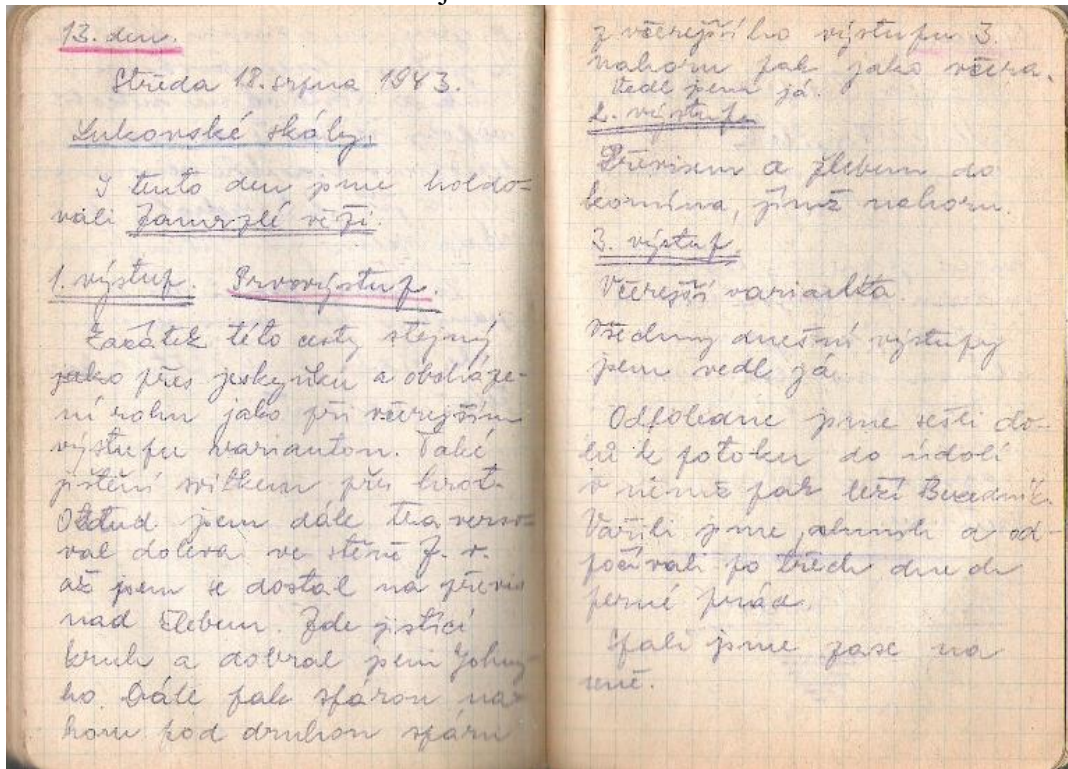 13. den.
Středa 18. srpna 1943.
Lukovské skály.
I tento den jsme holdo=
vali Zamrzlé věži.
1. výstup. Prvovýstup.
Začátek této cesty stejný
jako přes jeskyňku a obcháze-
ní rohu jako při včerejším
výstupu variantou. Také
jištění svitkem přes hrot.
Odtud jsem dále traverso=
val doleva ve stěně Z. v.
až jsem se dostal na převis
nad žlebem. Zde jistící
kruh a dobral jsem Johny-
ho. Dále pak spárou na=
horu pod druhou spáru
z včerejšího výstupu 3.
nahoru pak jako včera.
Vedl jsem já.
2. výstup
Převisem a žlebem do
komína, jímž nahoru.
3. výstup.
Včerejší varianta.
Všechny dnešní výstupy
jsem vedl já.
Odpoledne jsme sešli do-
lů k potoku do údolí
v němž pak leží
Vařili jsme, slunili a od-
počívali po třech dnech
perné práce.
Spali jsme zase na
seně.